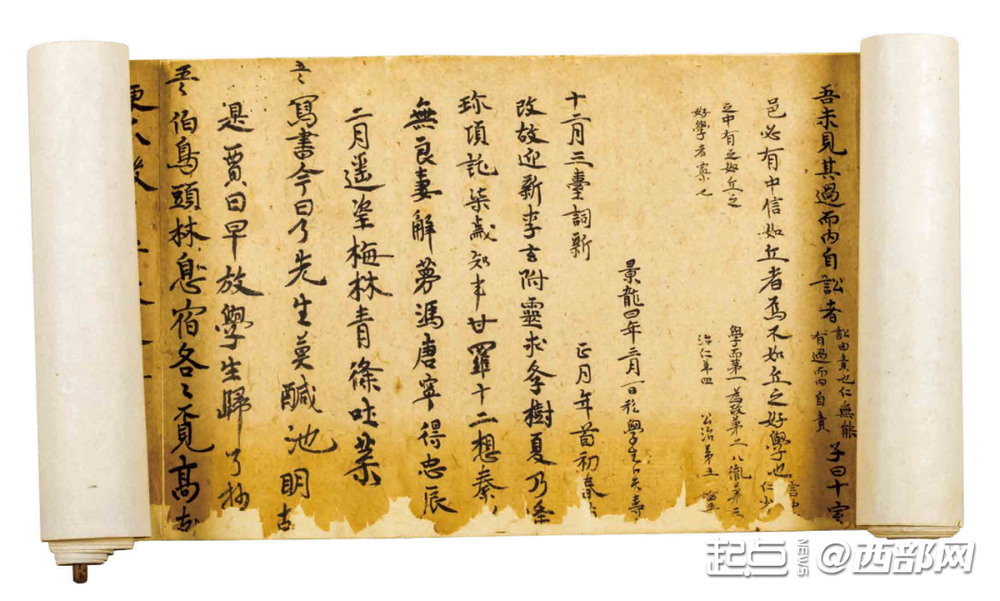 吾未見其過而內自訟者
訟由責也仁無能
有過而內自責
子曰十室
邑必有中信如丘者焉不如丘之好學也
之中有之如丘之
好學者寡也
學而第一 為政第二 八佾第三
治仁第四 公治第五
景龍四年三月一日私學生卜天壽
十二月三臺詞新
正月年首初春
改故迎新李玄附靈求學樹夏乃逢
珎項託柒歲知事甘羅十二想秦
無良妻解夢馮唐寧得忠辰
二月遥望梅林青條吐葉
寫書今日了先生莫醎池明
是賈日早放學生歸 了抄
伯鳥頭林息宿各々覓高
起点NEWS @西部网